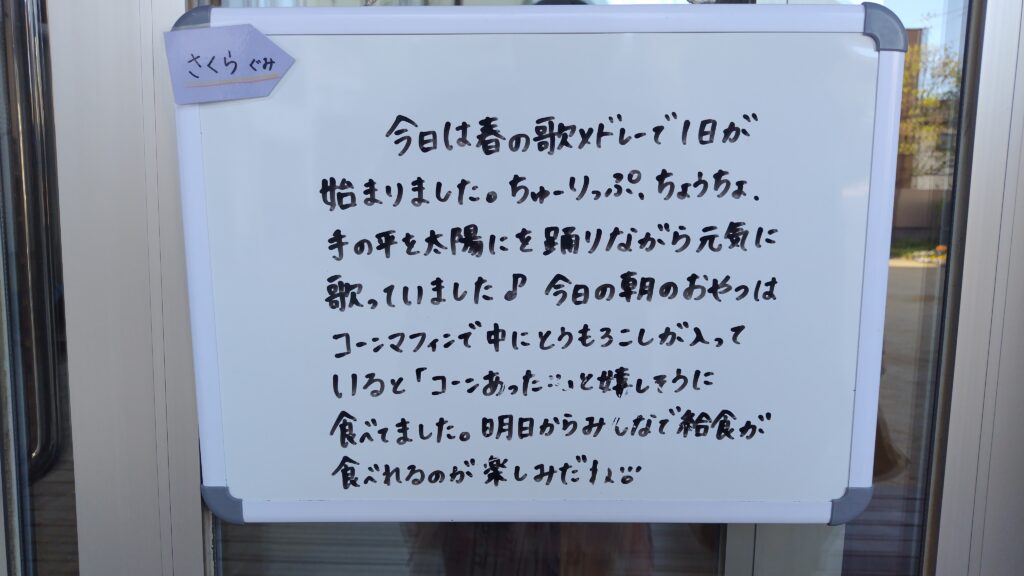 さくら ぐみ
今日は春の歌メドレーで1日が
始まりました。ちゅーりっぷ、ちょうちょ、
手の平を太陽にを踊りながら元気に
歌っていました♪ 今日の朝のおやつは
コーンマフィンで中にとうもろこしが入って
いると「コーンあった と嬉しそうに
食べてました。明日からみんなで給食が
食べれるのが楽しみだね